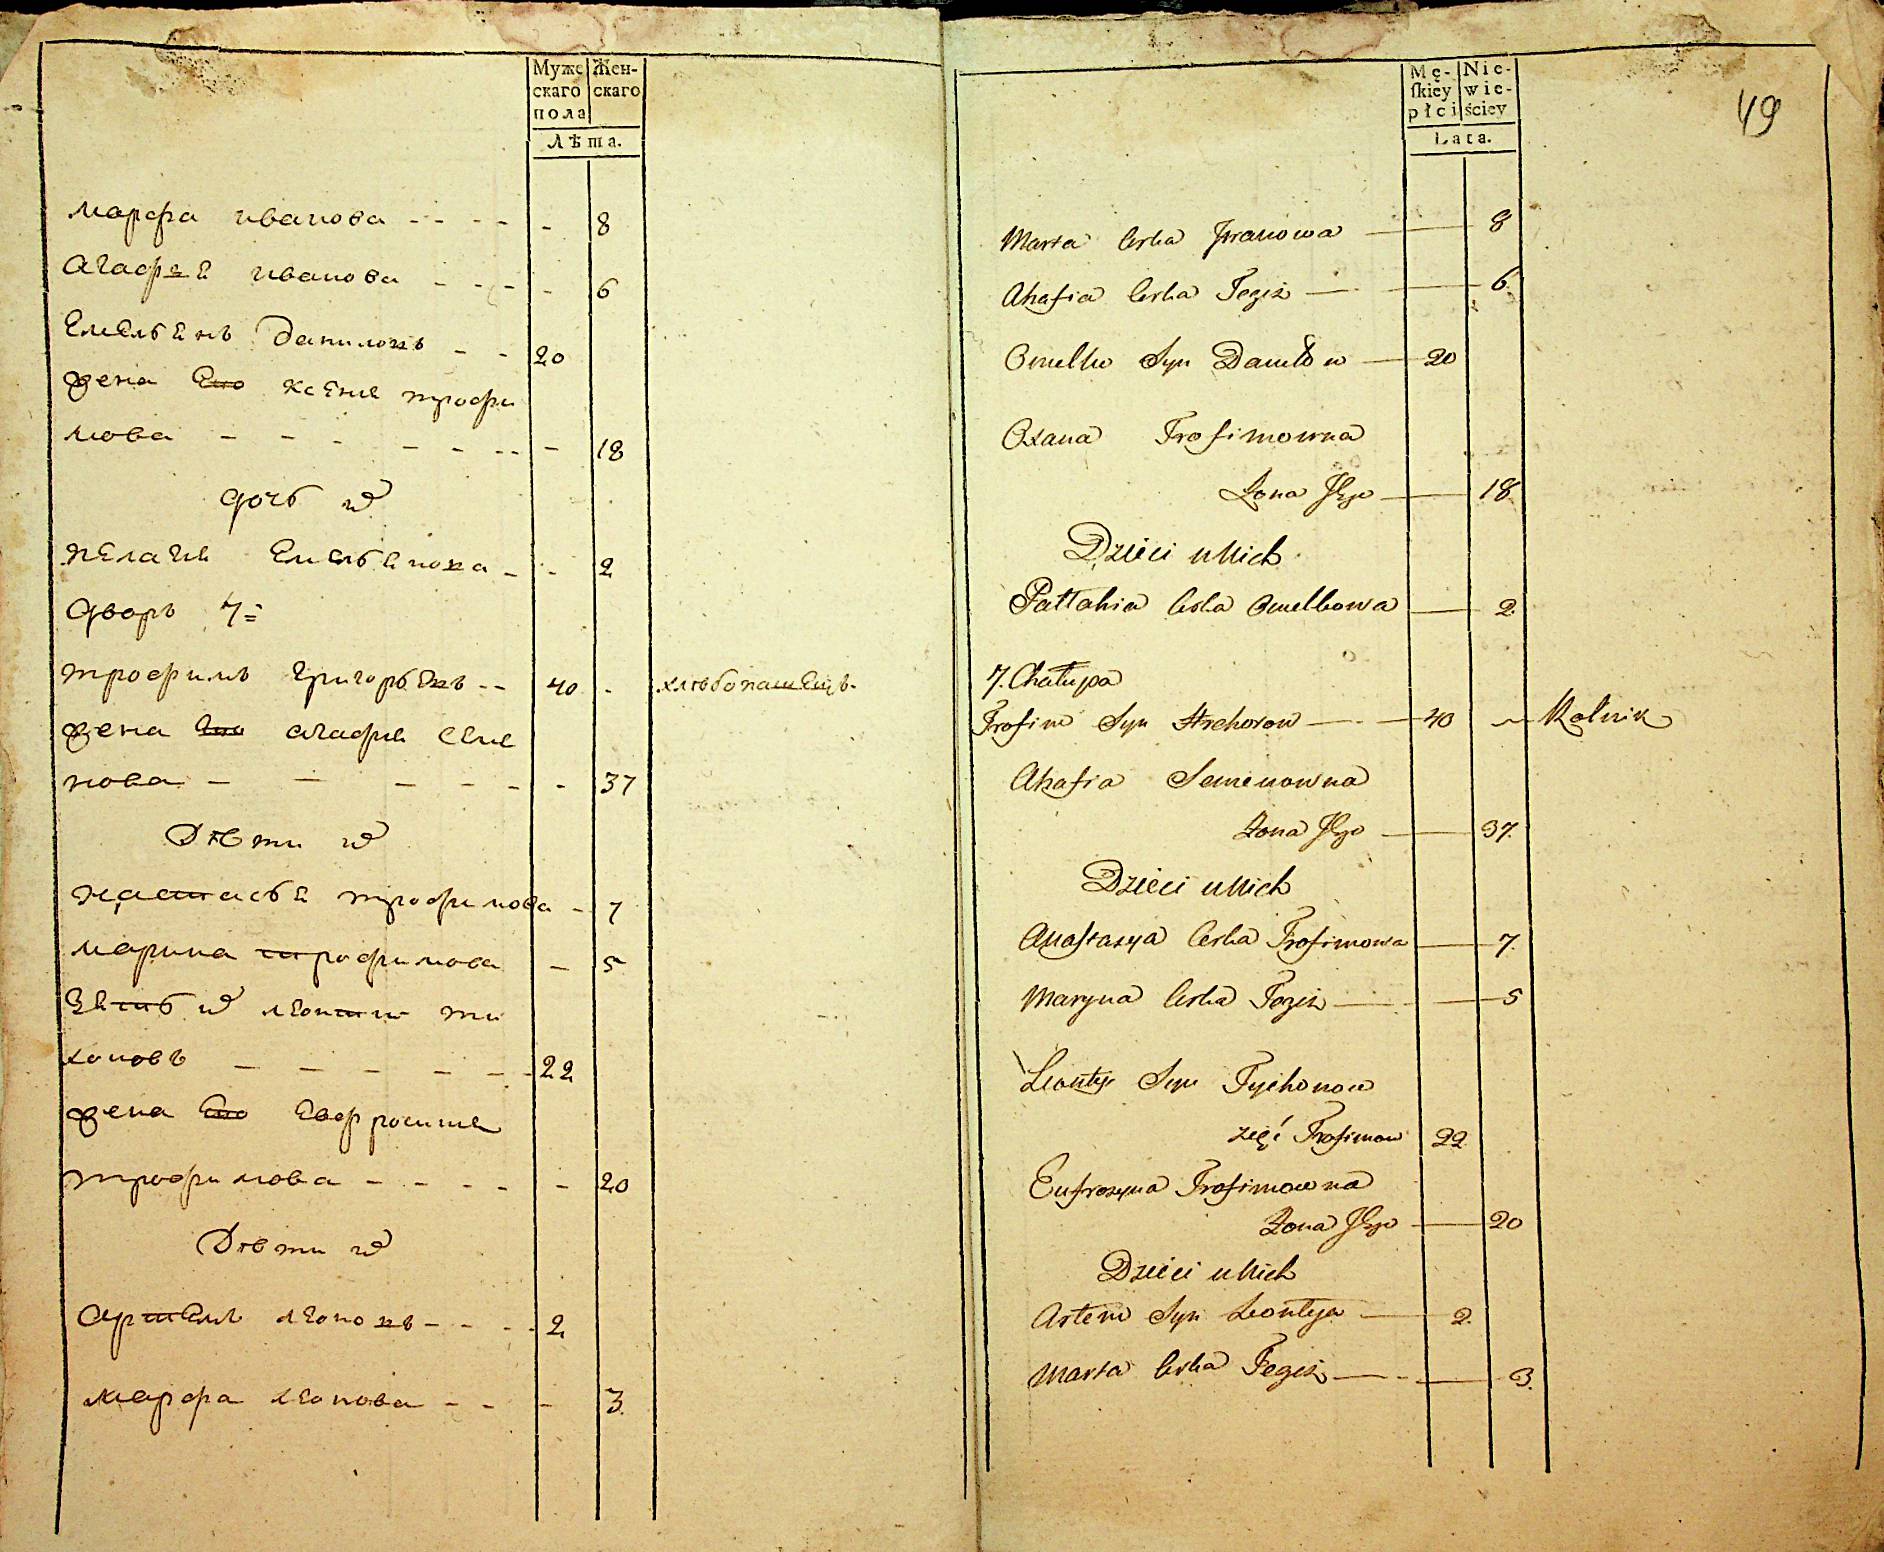 Муже
скаго
пола
Жен-
скаго
Лѣта.
марфа иванова - - - - - 8
агафѣя иванова - - - - 6
Емельянъ даниловъ - - 20
жена Его Ксения трофи
мова - - - - - - - 18
дочь их
пелагия Емельянова - - 2
дворъ 7й
трофимъ григорьевъ - - 40 - хлѣбопашецъ.
жена Его агафия семе
нова - - - - - - 37
Дѣти их
настасья трофимова - 7
марина трофимова - 5
Зять их леонтий ти
хоновъ - - - - - - 22
жена Его Евфросиния
трофимова - - - - - 20
Дѣти их
артемъ леоновъ - - - - 2
марфа леонова - - - 3
49
Mę-
skiey
płci
Nie-
wie-
ściey
Lata.
Marta Corka Jwanowa — 8
Ahafia Corka Tegiż — 6
Omelko Syn Daniłow — 20
Oxana Trofimowna
Zona Jego — 18
Dzieci u Nich
Pałłahia Corka Omelkowa — 2
7. Chałupa
Trofim Syn Hrehorow — 40 ~ Rolnik
Ahafia Semenowna
Zona Jego — 37.
Dzieci u Nich
Anastazya Corka Trofimowa — 7.
Maryna Corka Tegiż — 5
Leonty Syn Tychonow
zięć Trofimow 22
Eufrozyna Trofimowna
Zona Jego — 20
Dzieci u Nich
Artem Syn Leontya — 2.
Marta Corka Tegiż — 3.